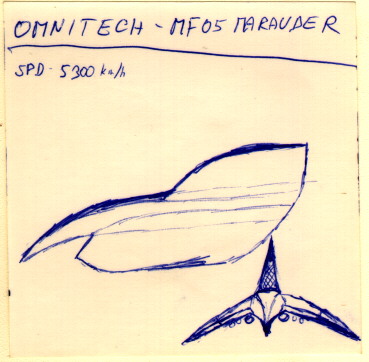 OMNITECH - MF05 MARAUDER
SPD - 5300 km/h